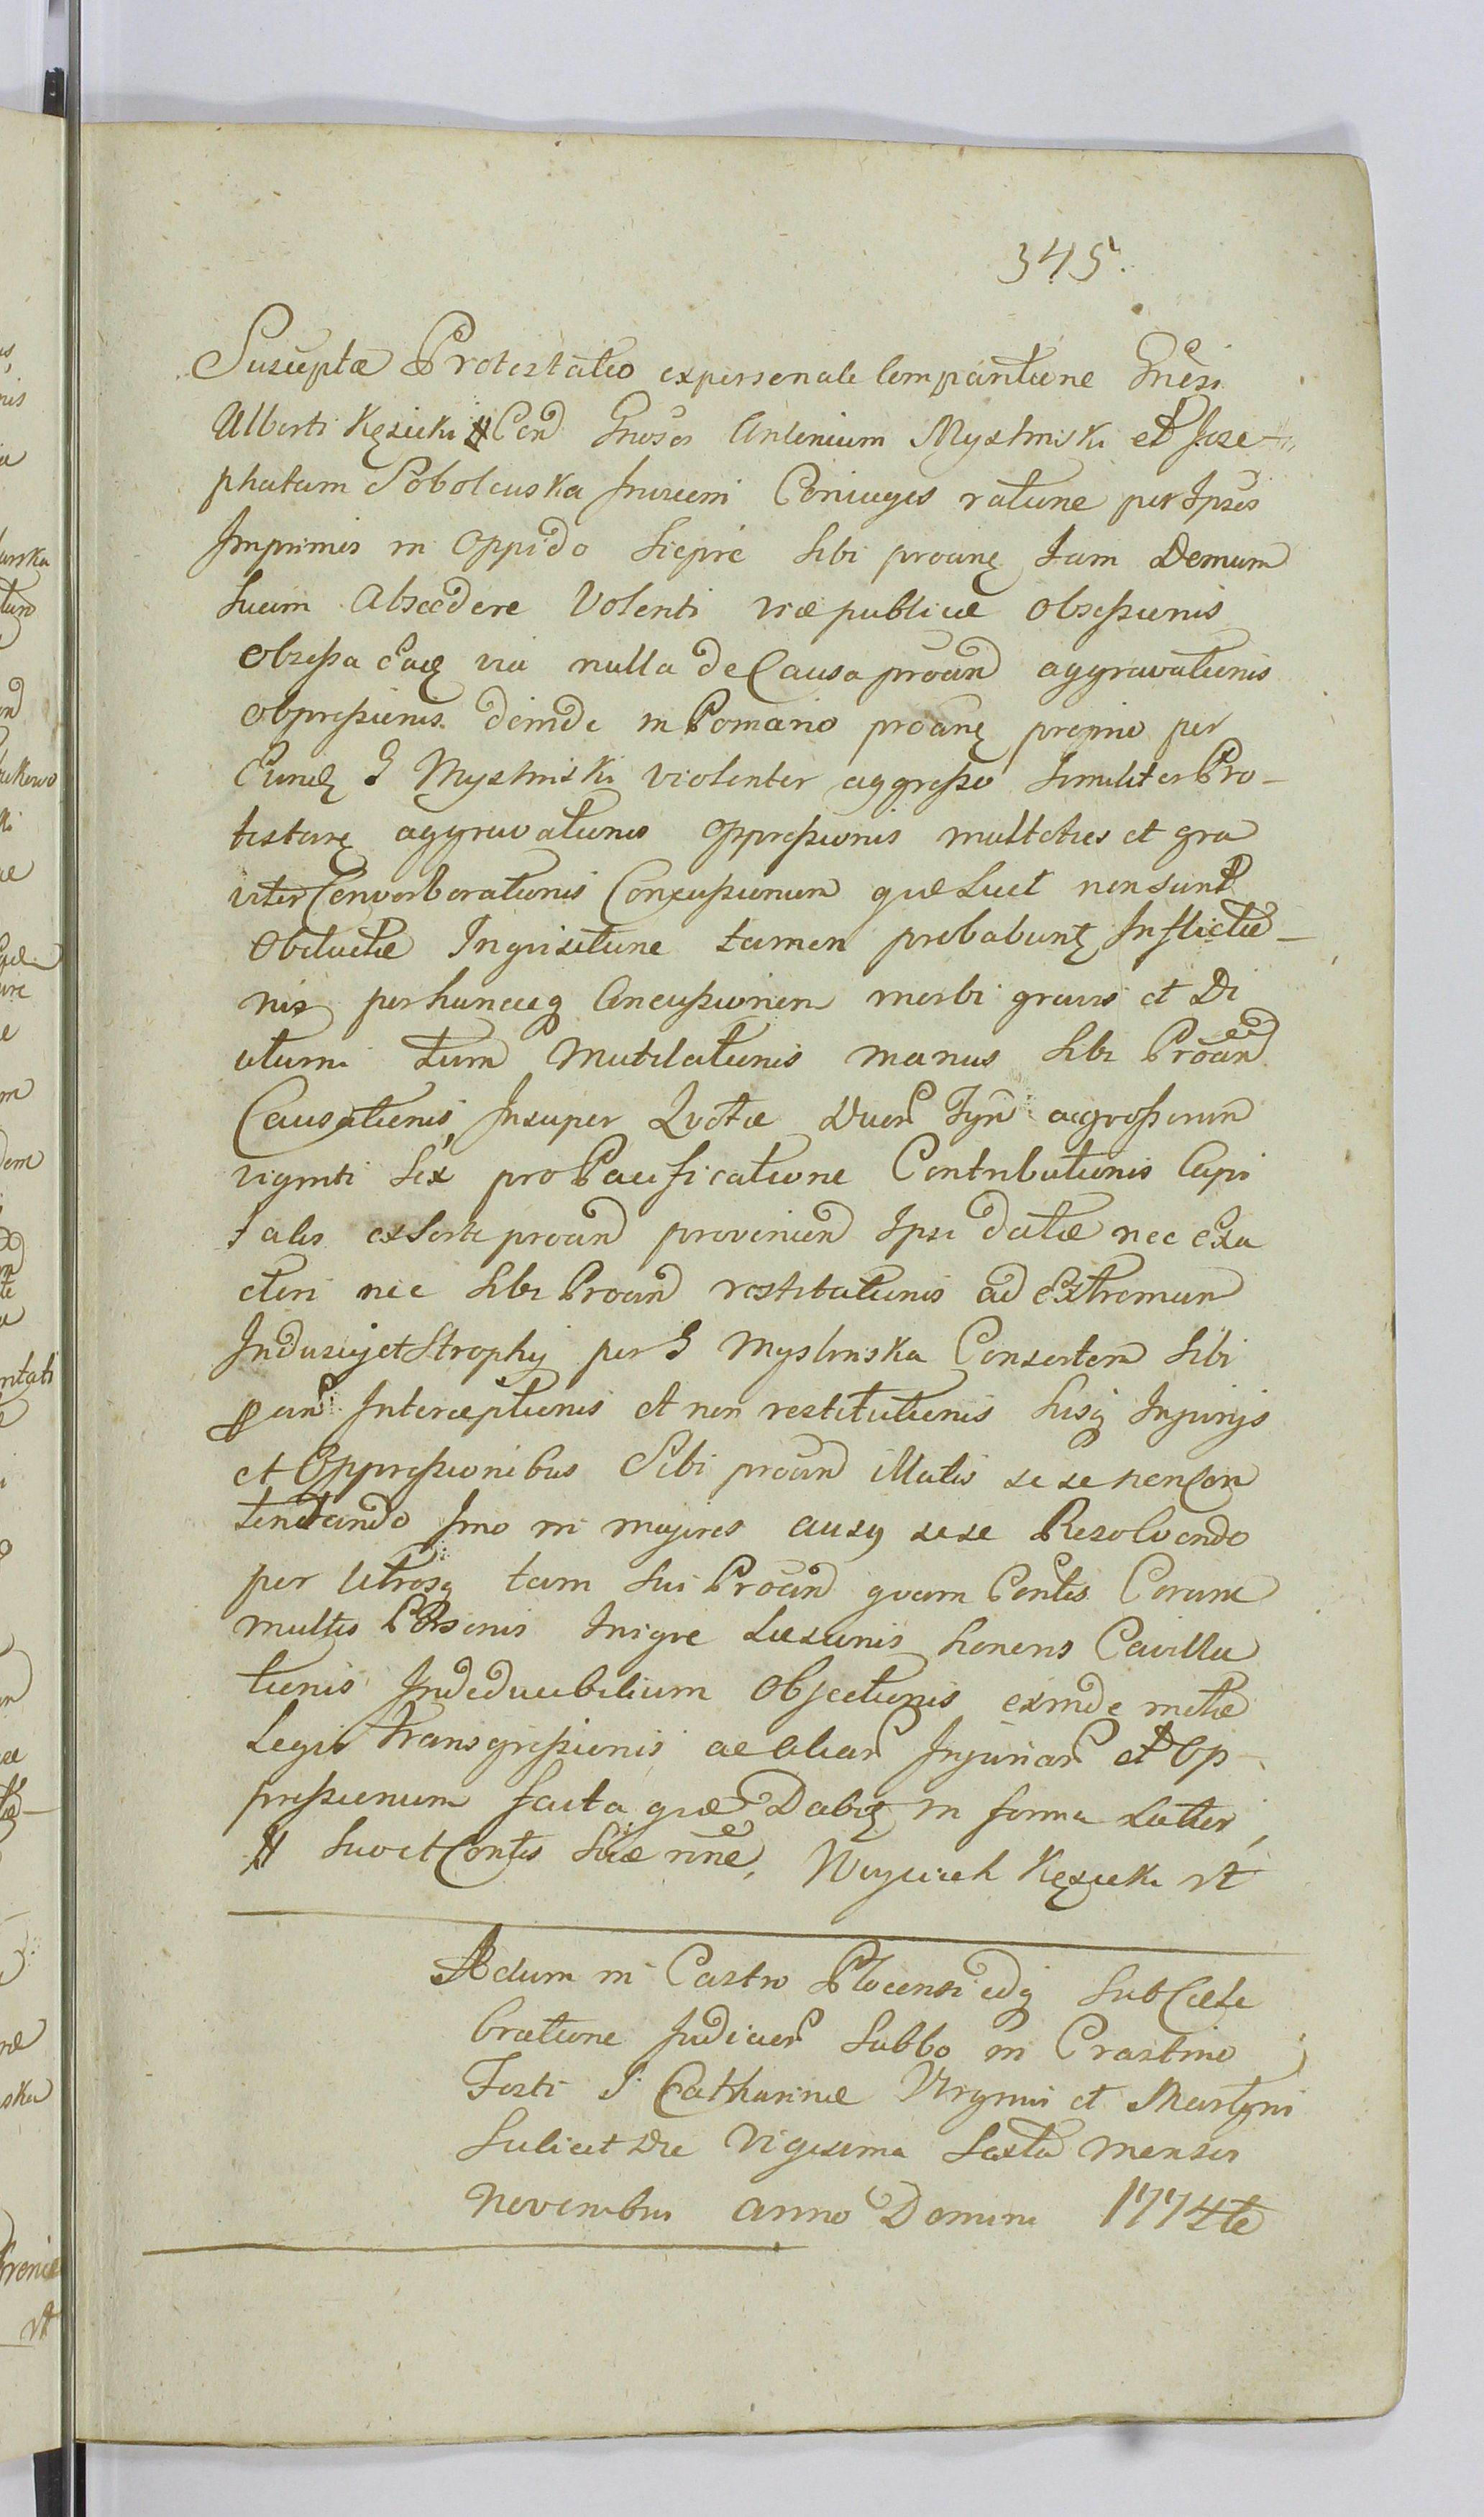 345.
Suscepta Protestatio ex personali Comparitione Gnesi
Alberti Kęsicki # Con Gnosos Antonium Myslinski et Josa-
phatam Sobolewska Invicem Coniuges ratione per Ipsos
Imprimis in Oppido Sieprc Sibi proanę Jam Demum
Suam Abscedere Volenti viæ publicæ obsessionis
obsessa eaq via nulla de Causa proan aggravationis
obpressionis deinde in Pomario proanę proprio per
Eundę G Myslinski violenter aggresso Similiter Pro-
testanę aggravationis oppressionis multoties et gra
viter Converberationis Conxussionum quæ Licet non sunt
Obductæ Inquisitione tamen probabuntę Inflictio-
nis per huncce Concussionem morbi gravis et Di
uturni tum Mutilationis manus Sibi Proan
Causationis, Insuper Quotæ Duor Tyn ac grossorum
viginti Sex pro Pacificatione Contributionis Capi
talis ex Sorte proan provenien Ipsi datæ nec exa
ctori nec Sibi Proan restitutionis ad Extremum
Indusiy et Strophy per G Myslinska Consortem Sibi
pan Interceptionis et non restitutionis Hisq Injurijs
et Oppressionibus Sibi proan illatis se se non Con
tentando Imo in majores ausq sese Resolvendo
per Utrosq tam Sui Proan quam Contis Coram
multis Personis Inique Læsionis honoris Cavilla
tionis Indeducibilium Objectionis exinde motæ
Legis transgressionis ac aliar Injuriar et Op-
pressionum facta quæ Dabię in forma Latior,
# Suo et Contis Suæ nne, Woyciech Kęsicki vt
Actum in Castro Plocensi edq Sub Cæle
bratione Judicior Sabbo in Crastino
Festi S Catharinæ Virginis et Martyris
Scilicet Die Vigesima Sexta mensis
Novembris anno Domini 1774to